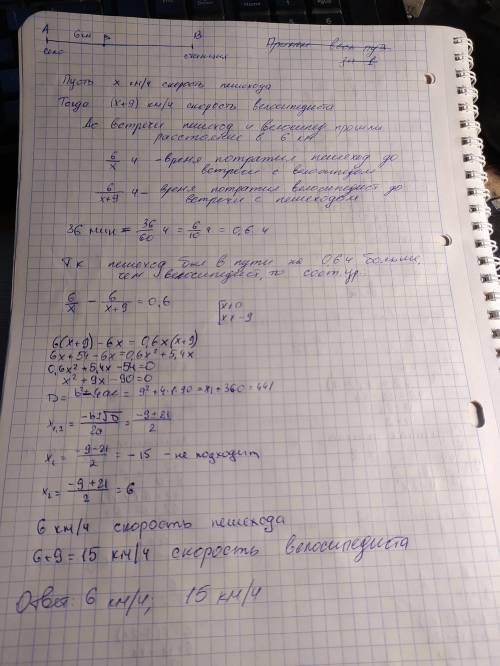 A 6км B
село станция
Пусть x км/ч скорость пешехода
Тогда (x+9) км/ч скорость велосипедиста
До встречи пешеход и велосипед прошли
расстояние в 6 км
6/x ч - время потратил пешеход до
встречи с велосипедом
6/(x+9) ч - время потратил велосипедист до
встречи с пешеходом
36 мин = 36/60 ч = 6/10 ч = 0,6 ч
Т.к пешеход был в пути на 0,6 ч больше,
чем велосипедист, то сост. ур.
6/x - 6/(x+9) = 0,6 [x≠0
x≠-9
6(x+9) - 6x = 0,6x(x+9)
6x+54-6x=0,6x²+5,4x
0,6x²+5,4x-54=0
x²+9x-90=0
D= b²-4ac = 9²+4·1·90=81+360=441
x₁,₂ = (-b±√D)/2a = (-9±21)/2
x₁ = (-9-21)/2 = -15 - не подходит
x₂ = (-9+21)/2 = 6
6 км/ч скорость пешехода
6+9=15 км/ч скорость велосипедиста
Ответ: 6 км/ч; 15 км/ч